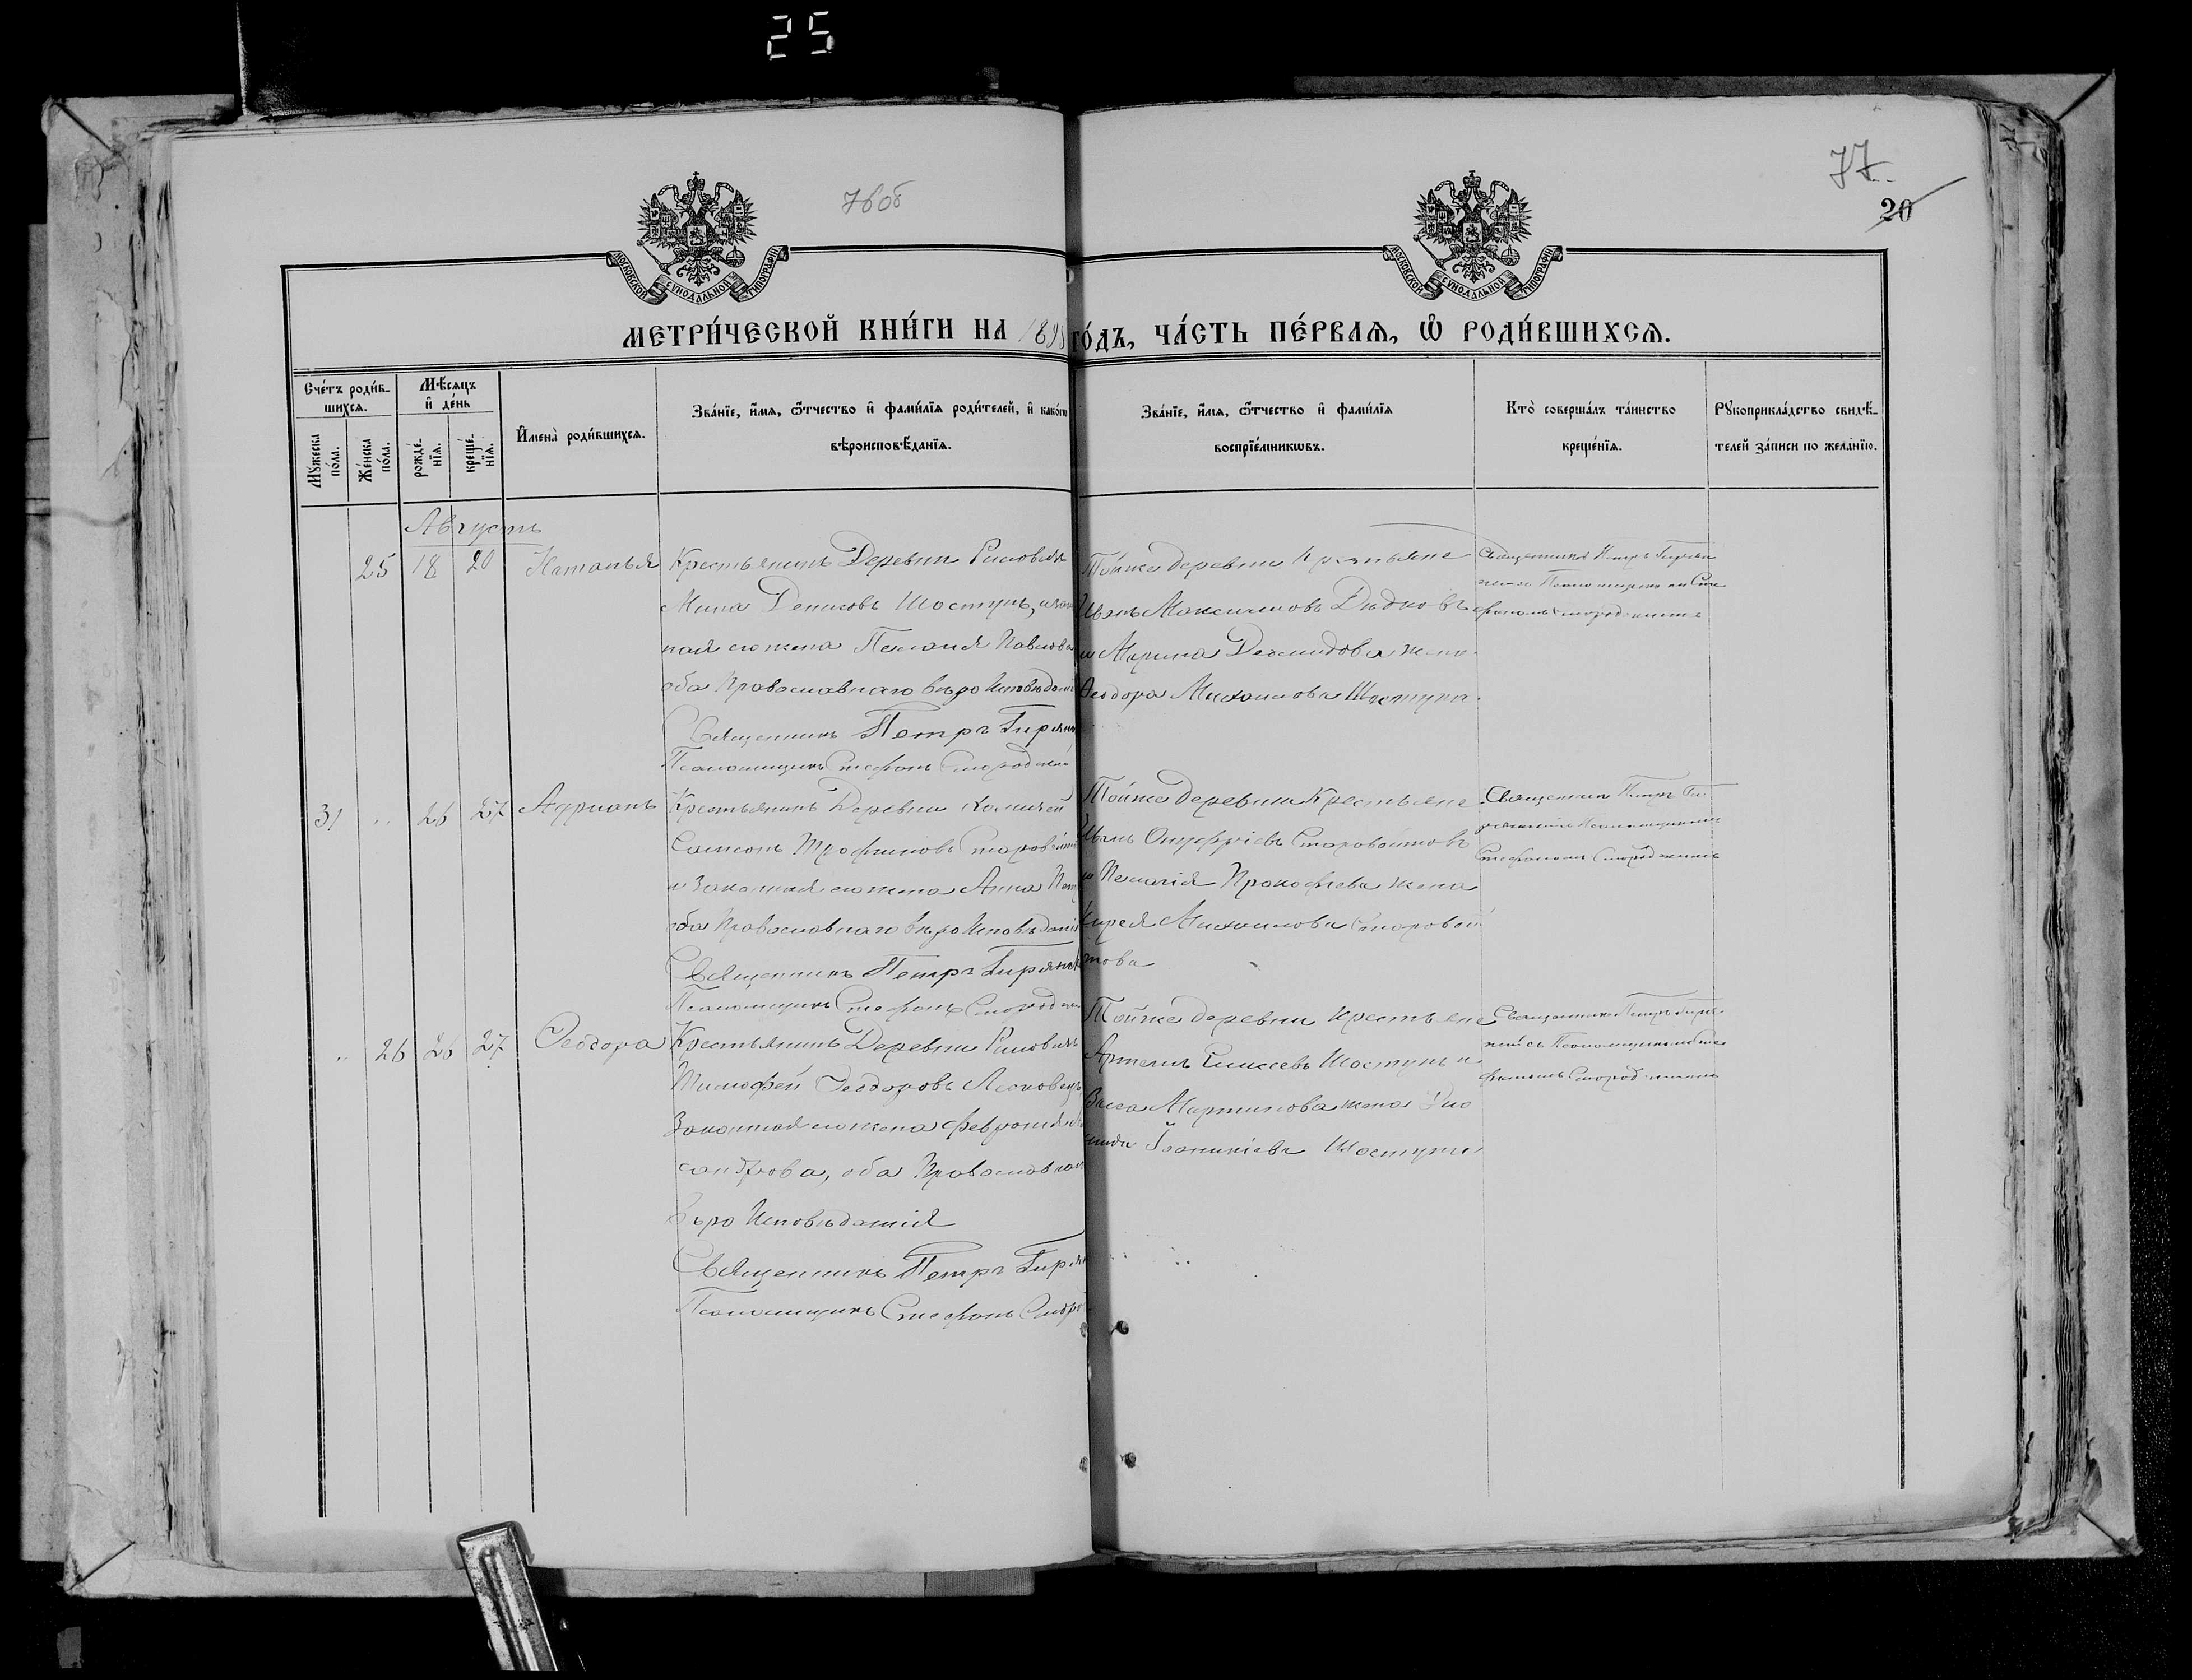 25
76об
77.
20
МОСКОВСКОЙ СѴНОДАЛЬНОЙ ТИПОГРАФІИ
МОСКОВСКОЙ СѴНОДАЛЬНОЙ ТИПОГРАФІИ
МЕТРИ́ЧЕСКОЙ КНИ́ГИ НА 1895 ГО́ДЪ, ЧА́СТЬ ПЕ́РВАѦ, Ѡ҆ РОДИ́ВШИХСѦ.
Сче́тъ роди́в-
шихсѧ.
Мꙋ́жеска
по́ла.
Же́нска
по́ла.
Мѣ́сѧцъ
и҆ де́нь
рожде́-
нїѧ.
креще́-
нїѧ.
И҆мена̀ роди́вшихсѧ.
Зва́нїе, и҆́мѧ, ѻ҆́тчество и҆ фами́лїѧ роди́телей, и҆ како́гѡ
вѣроисповѣ́данїѧ.
Зва́нїе, и҆́мѧ, ѻ҆́тчество и҆ фами́лїѧ
воспрїе́мникѡвъ.
Кто̀ соверша́лъ та́инство
креще́нїѧ.
Рꙋкоприкла́дство свидѣ́-
телей за́писи по жела́нїю.
Августъ
25 18 20 Наталья
Крестьянинъ Деревни Рыловичъ
Мина Денисовъ Шостунъ, и закон
ная его жена Пелагія Павлова
оба Православнаго вѣро Исповѣданія
Священникъ Петръ Гирян
Псаломщикъ Стефанъ Смород
Тойже деревни Крестьяне
Иванъ Максимовъ Дѣдковъ
и Марина Демидова жена
Ѳеодора Михаилова Шостуна
Священникъ Петръ
Псаломщикомъ Сте
фаномъ
31 „ 26 27 Адріанъ
Крестьянинъ Деревни
Самсонъ Трофимовъ Старовойт
и Законная его жена Анна Пет
оба Православнаго вѣро Исповѣданія
Священникъ Петръ Гирян
Псаломщикъ Стефанъ Смород
Тойже деревни Крестьяне
Иванъ Онуфріевъ Старовойтовъ
и Пелагія Прокофьева жена
Кирея Михаилова Старовой
това
Священникъ Петръ Ги
Псаломщикомъ
Стефаномъ
„ 26 26 27 Ѳеодора
Крестьянинъ Деревни Рыловичъ
Тимофей Ѳеодоровъ Лесковецъ
Законная его жена Февронія
сандрова, оба Православнаго
вѣро Исповѣданія
Священникъ Петръ Гирян
Псаломщикъ Стефанъ Смор
Тойже деревни Крестьяне
Артемъ Елисеевъ Шостунъ и
Васса Мартинова жена Дио
мида Іоанникіева Шостуна
Священникъ Петръ Гиря
Псаломщикомъ Сте
фаномъ